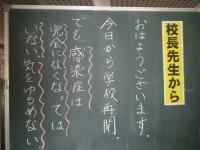 校長先生から
おはようございます。
今日から学校再開。
でも感染症は
完全になくなっては
いない。気をゆるめない。